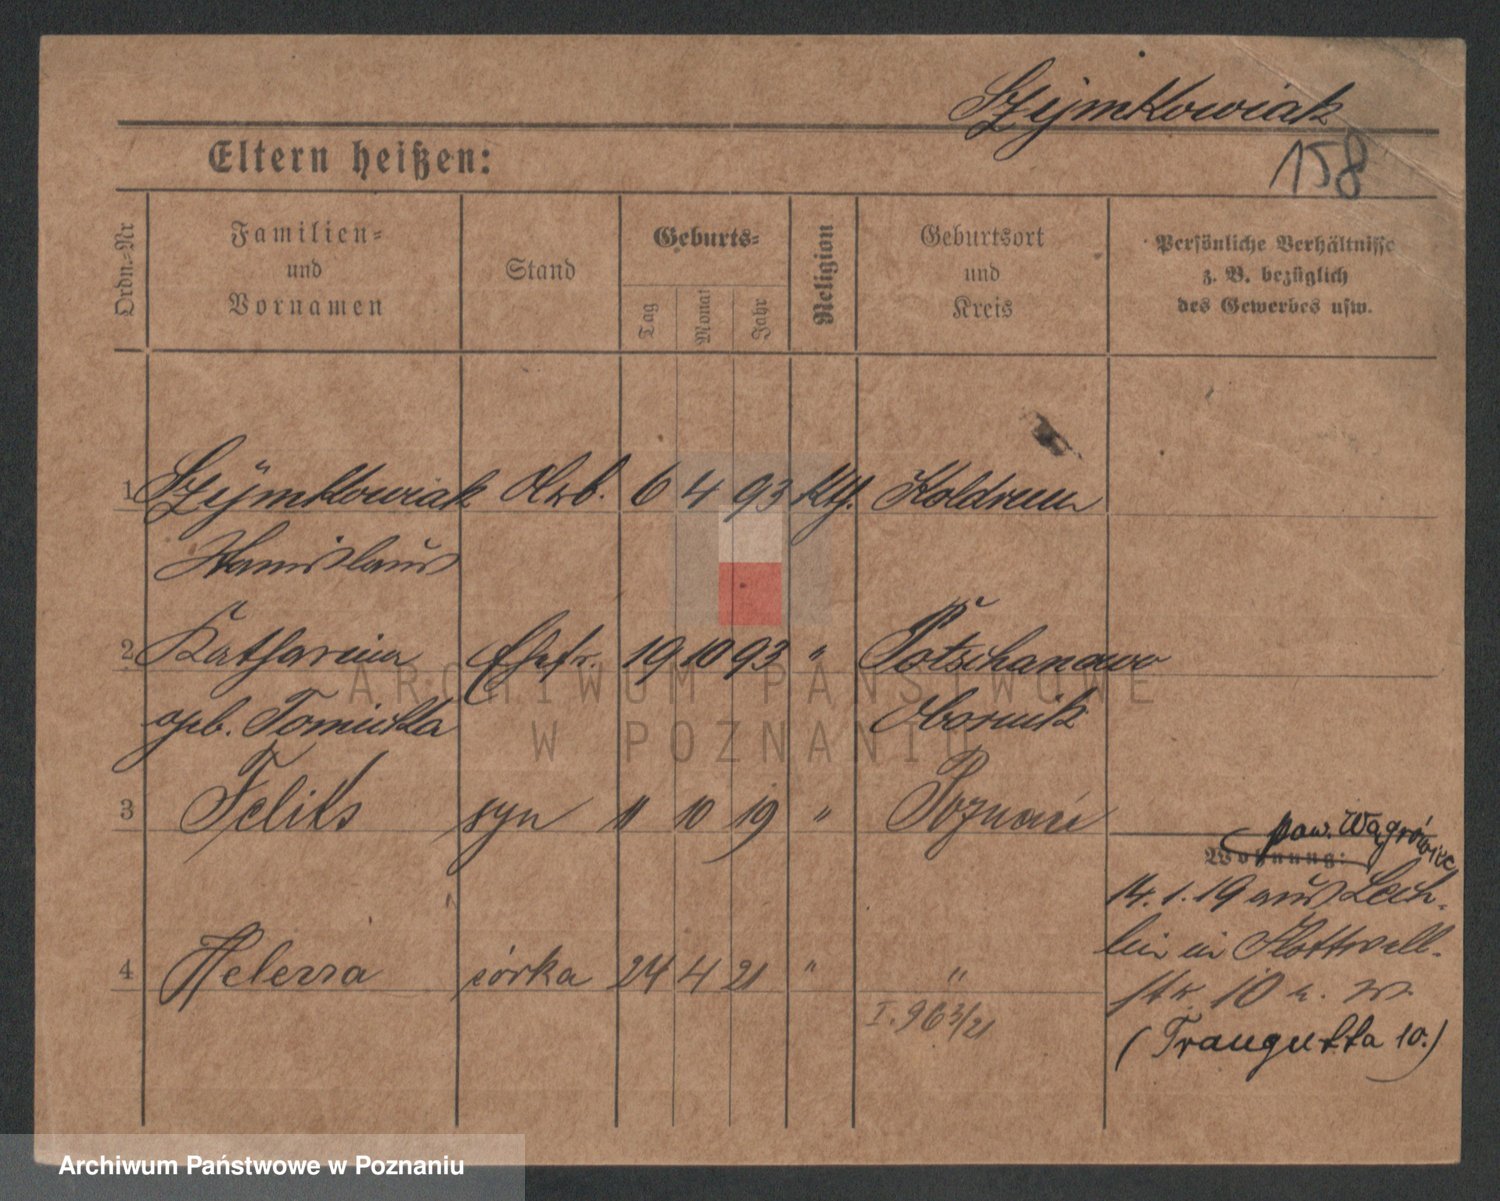 Szymkowiak
158
Eltern heißen:
Ordn.-Nr
Familien-
und
Vornamen
Stand
Geburts-
Tag
Monat
Jahr
Religion
Geburtsort
und
Kreis
Persönliche Verhältnisse
z. B. bezüglich
des Gewerbes usw.
1 Szymkowiak Arb. 6 4 93 kth.
Stanislaus
2 Katharina Ehefr. 19 10 93 " Potschanowo
geb. Obornik
3 Feliks syn 11 10 19 " Poznań
pow. Wągrówiec
Wohnung:
14.1.19 aus Lech-
lin in Flottwell-
4 Helena córka 24 4 21 " "
str. 10
I. 963/21
(Traugutta 10.)
ARCHIWUM PAŃSTWOWE
W POZNANIU
Archiwum Państwowe w Poznaniu